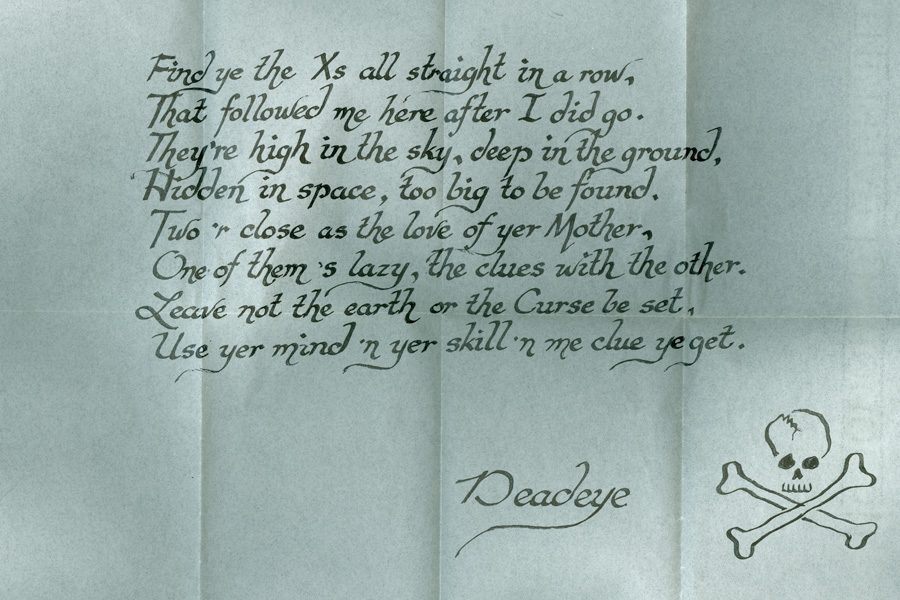 Find ye the Xs all straight in a row,
That followed me here after I did go.
They're high in the sky, deep in the ground,
Hidden in space, too big to be found.
Two 'r close as the love of yer Mother,
One of them 's lazy, the clues with the other.
Leave not the earth or the Curse be set,
Use yer mind 'n yer skill 'n me clue ye get.
Deadeye